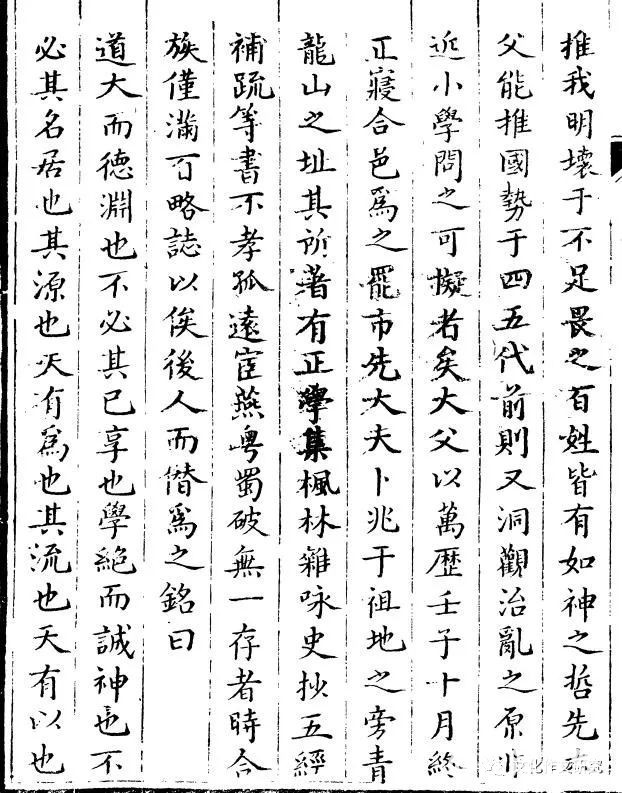 推我明壞于不足畏之百姓皆有如神之哲先大
父能推國勢于四五代前則又洞觀治亂之原
近小學問之可擬者矣大父以萬歷壬子十月終
正寢合邑爲之罷市先大夫卜兆于祖地之旁青
龍山之址其所著有正學集楓林雜咏史抄五經
補䟽等書不孝孤遠宦燕粤蜀破無一存者時合
族僅滿百略誌以俟後人而僣爲之銘曰
道大而德淵也不必其已享也學絶而誠神也不
必其名居也其源也天有爲也其流也天有以也